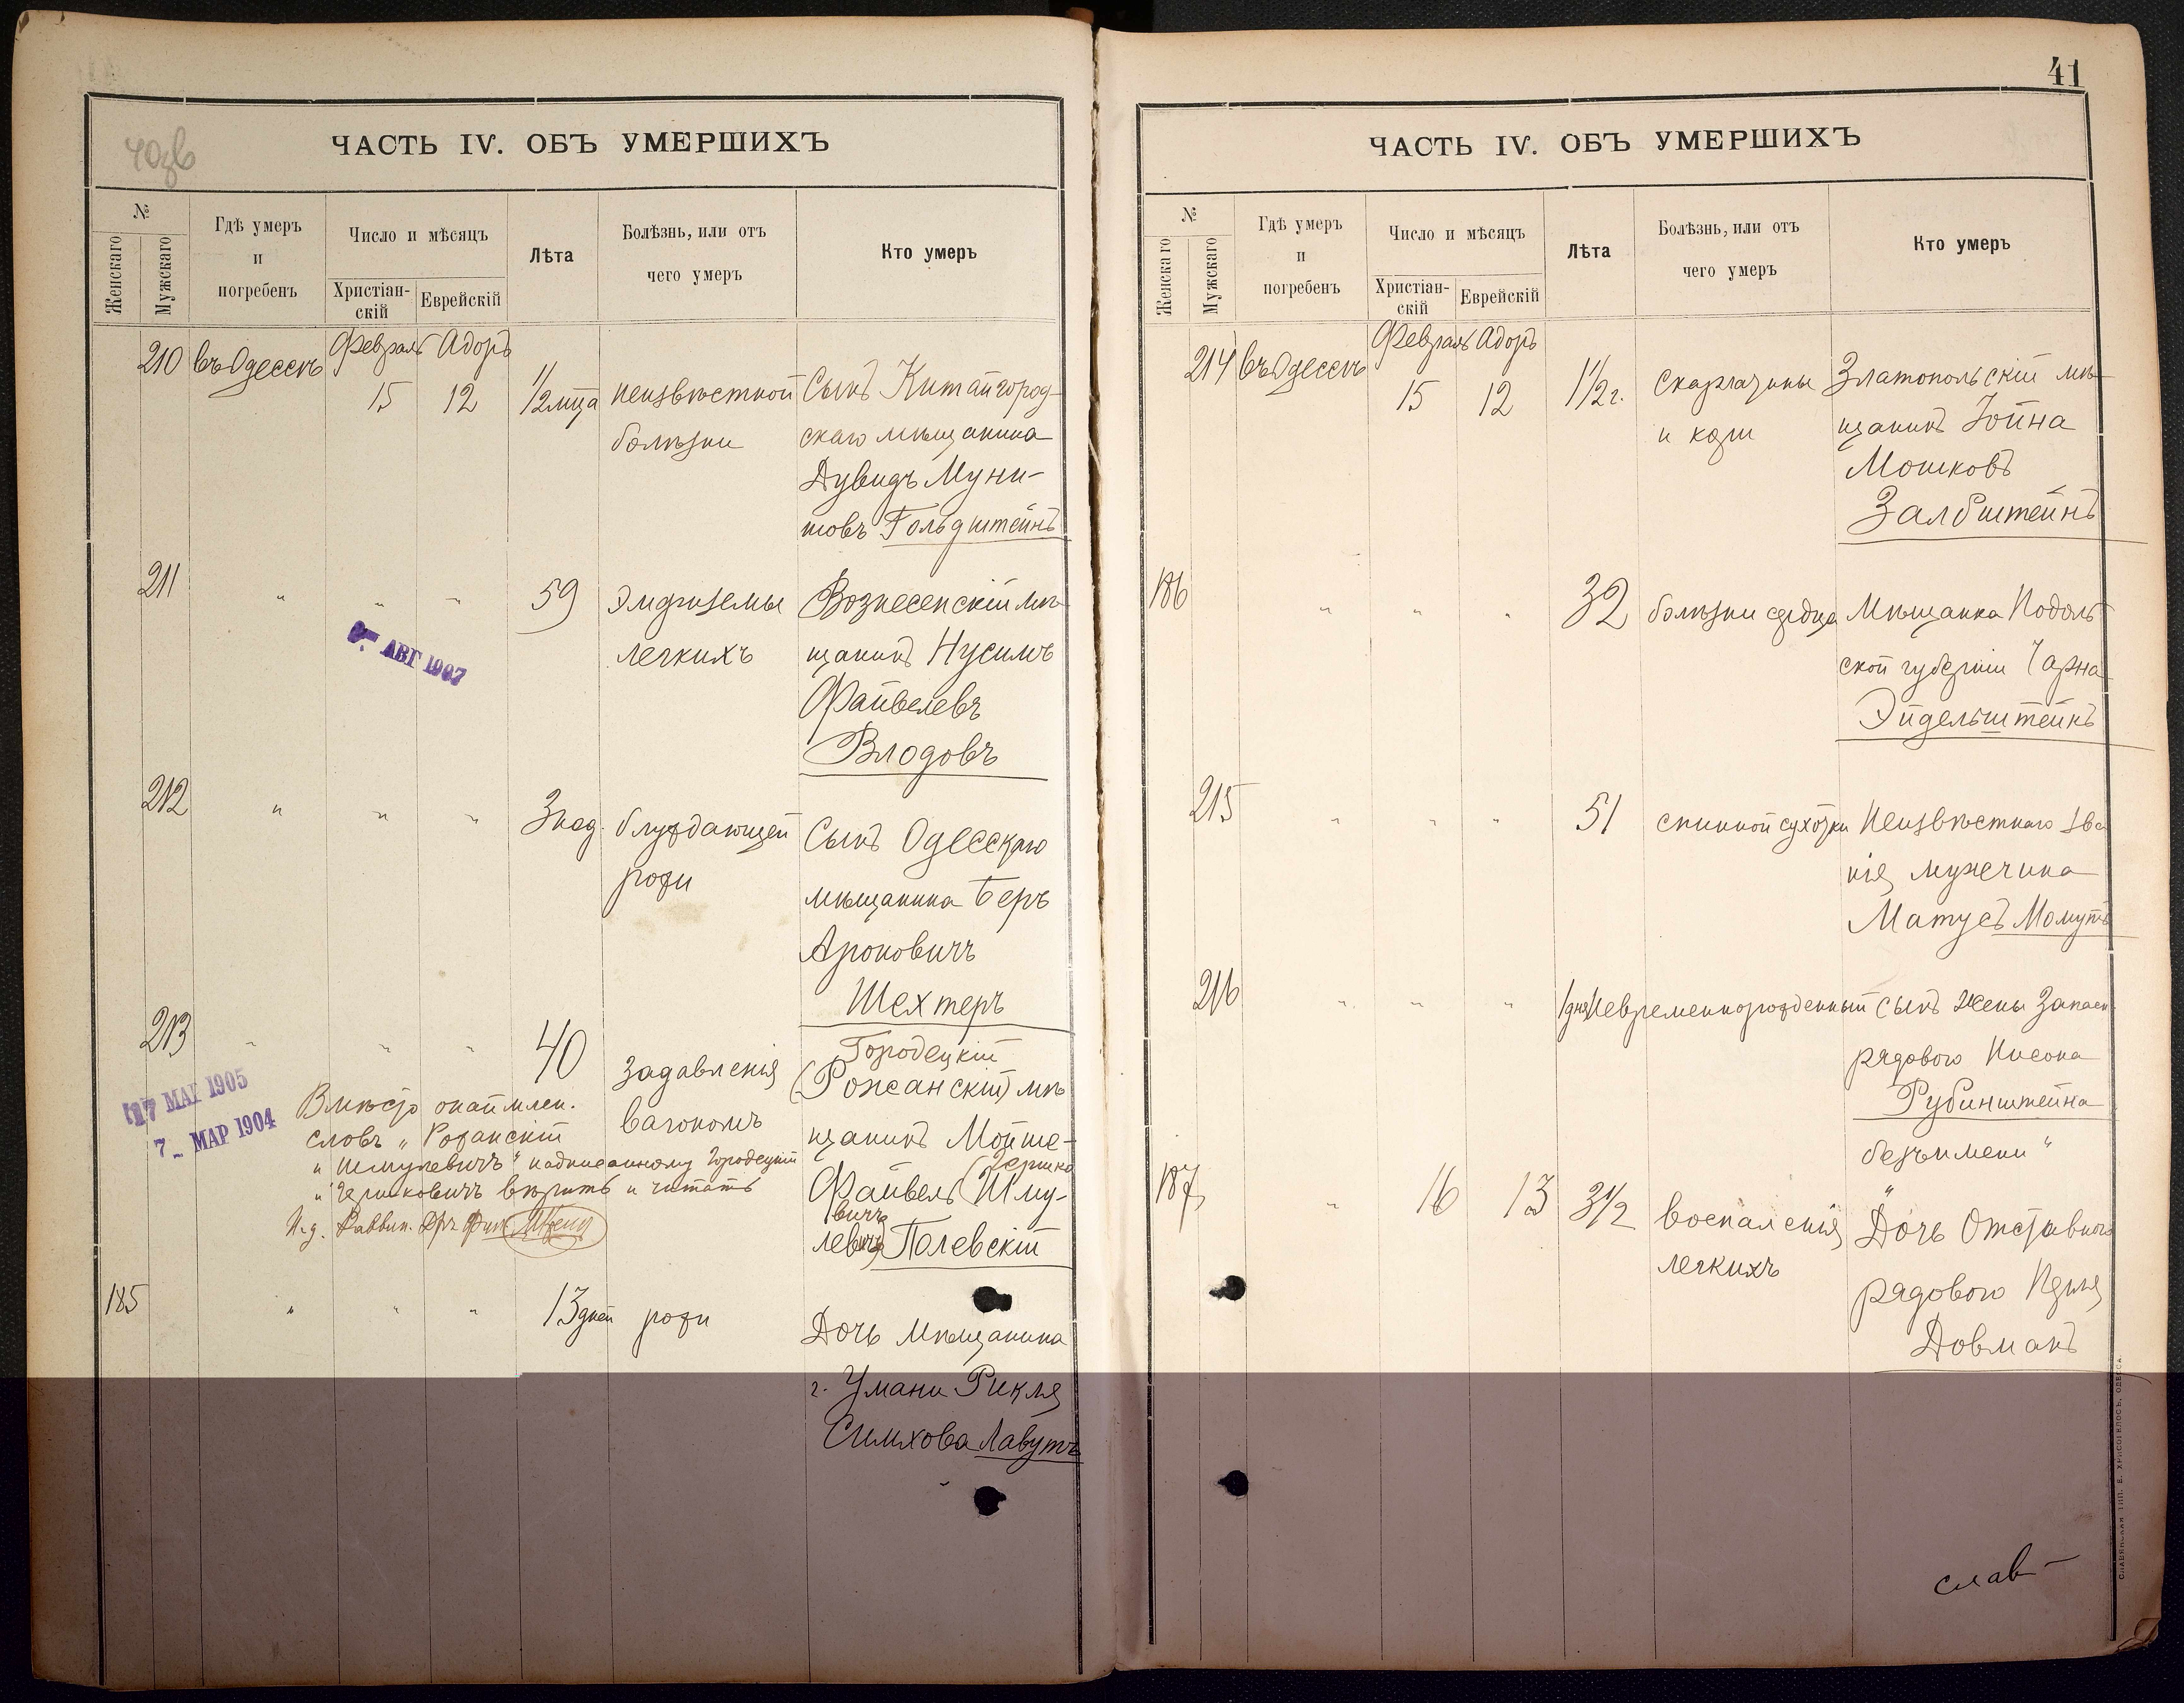 40об
ЧАСТЬ IV. ОБЪ УМЕРШИХЪ
№
Женскаго
Мужскаго
Гдѣ умеръ
и
погребенъ
Число и мѣсяцъ
Христіан-
скій
Еврейскій
Лѣта
Болѣзнь, или отъ
чего умеръ
Кто умеръ
210 въ Одессѣ Февраль Адоръ
15 12 1/2 мца неизвѣстной Сынъ Китайгород-
болѣзни скаго мѣщанина
Дувидъ Муни-
товъ Гольдштейнъ
211 " " " 59 Эмфиземы Вознесенскій мѣ-
легкихъ щанинъ Нусимъ
Файвелевъ
Влодовъ
АВГ 1907
212 " " " 3 нед. блуждающей Сынъ Одесскаго
рожи мѣщанина Беръ
Ароновичъ
Шехтеръ
213 " " " 40 задавленія Городецкій
(Рожанскій) мѣ-
вагономъ щанинъ Мойше-
Файвель (Шму-
Гершко
вичъ
левичъ) Полевскій
17 МАІ 1905
7 МАР 1904
Вмѣсто окаймлен.
словъ „Рожанскій
и Шмулевичъ" надписанному Городецкій
и Гершковичъ вѣрить и читать
И. д. Раввин. Др.
185 " " " 13 дней рожи Дочь мѣщанина
г. Умани Рикля
Симхова Лавутъ
41
ЧАСТЬ IV. ОБЪ УМЕРШИХЪ
№
Женскаго
Мужскаго
Гдѣ умеръ
и
погребенъ
Число и мѣсяцъ
Христіан-
скій
Еврейскій
Лѣта
Болѣзнь, или отъ
чего умеръ
Кто умеръ
214 въ Одессѣ Февраль Адоръ
15 12 1 1/2 г. скарлатины Златопольскій мѣ-
и кори щанинъ Іойна
Мошковъ
Залбштейнъ
186 " " " 32 болѣзни сердца Мѣщанка Подоль-
ской губерніи Чарна
Эйдельштейнъ
215 " " " 51 спинной сухотки Неизвѣстнаго зва-
нія мужчина
Матусъ Момутъ
216 " " " 1 дня Невременнорожденный сынъ жены Запасн.
рядового Нисона
Рубинштейна
безъимени "
187 " 16 13 3 1/2 воспаленія Дочь Отставного
легкихъ рядового Перля
Довманъ
слав-
СЛАВЯНСКАЯ ТИП. Е. ХРИСОГЕЛОСЪ, ОДЕССА.